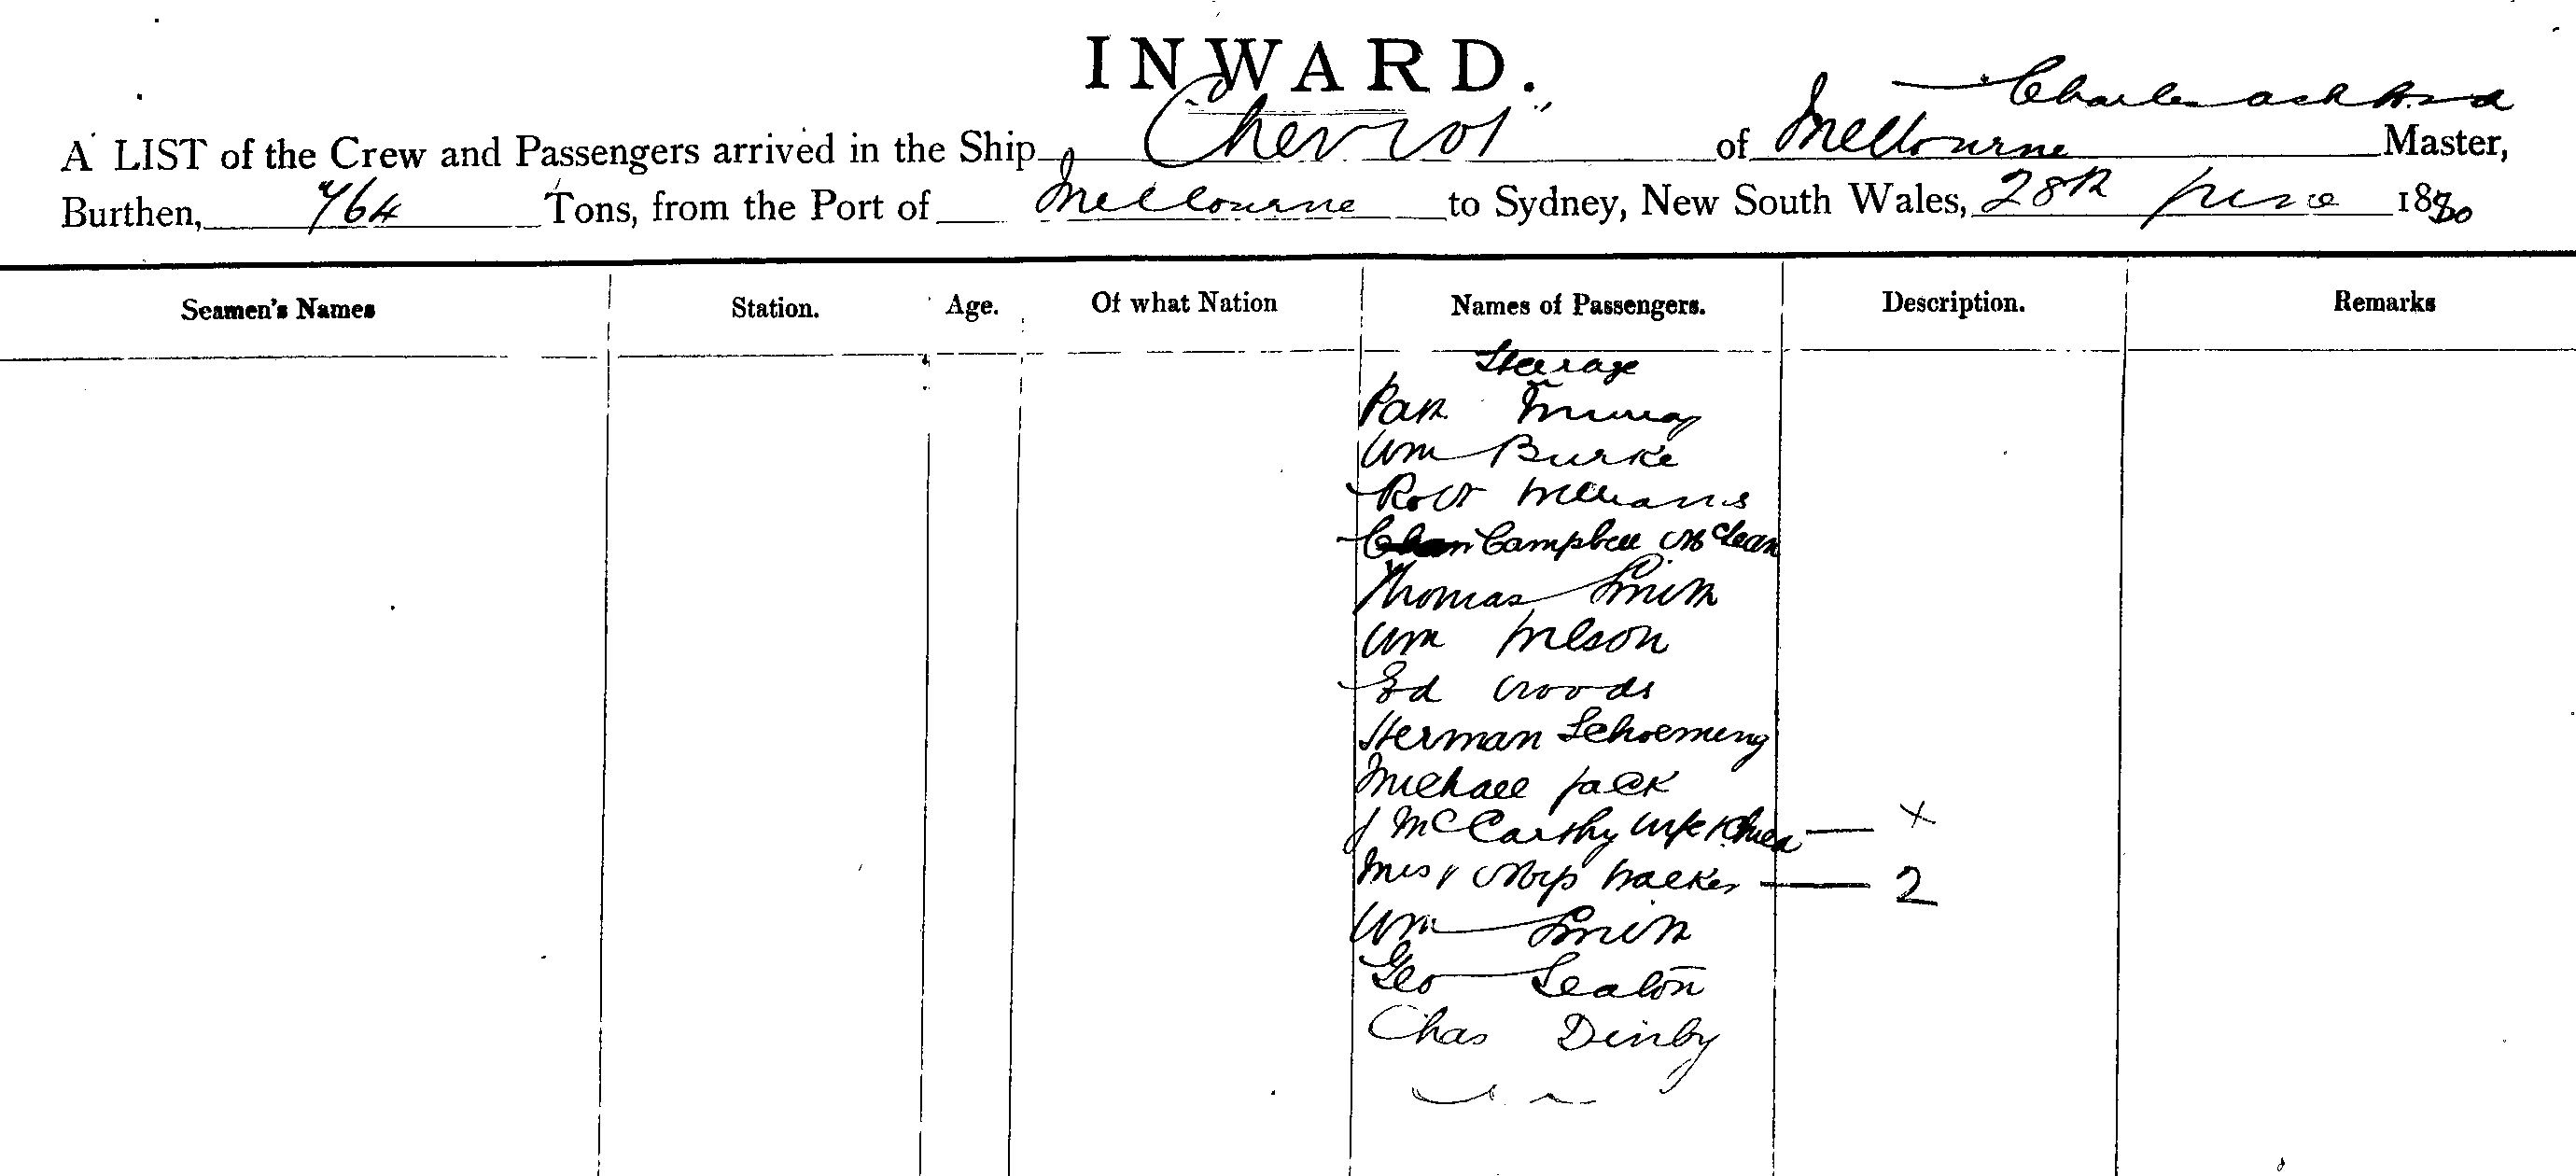 INWARD.
Charles Ashford
A LIST of the Crew and Passengers arrived in the Ship "Cheviot" of Melbourne Master,
Burthen, 764 Tons, from the Port of Melbourne to Sydney, New South Wales, 28th June 1880
Seamen's Names Station. Age. Of what Nation Names of Passengers. Description. Remarks
Steerage
Pat Murray
Wm Burke
Robt Williams
Campbell McLean
Thomas Smith
Wm Wilson
Ed Woods
Herman Schoeming
Michael Jack
J McCarthy Wife & Child — X
Mrs & Miss Walker — 2
Wm Smith
Geo Seaton
Chas Denby